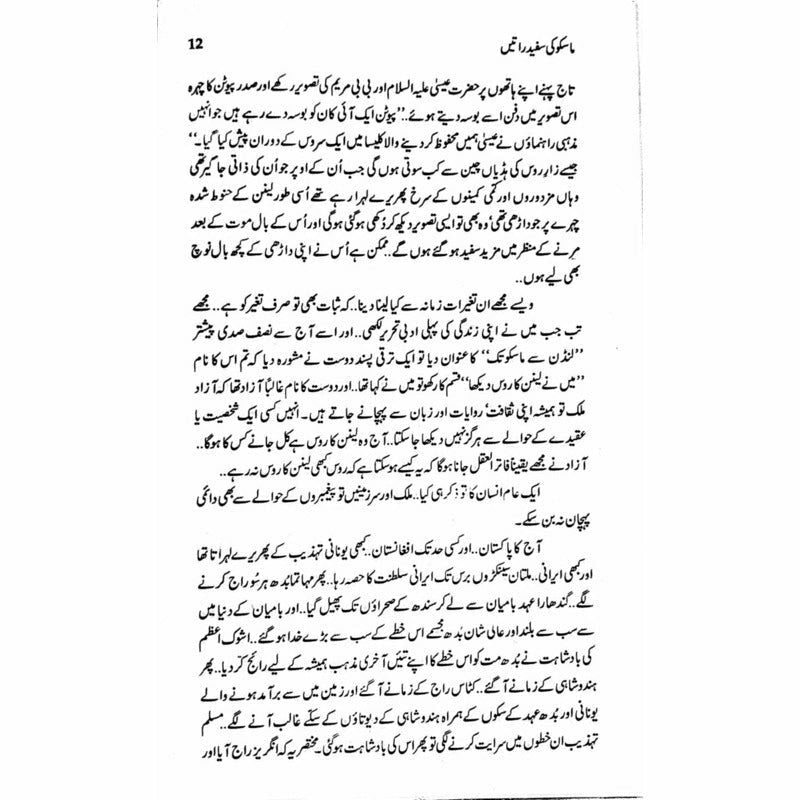 ماسکو کی سفید راتیں
12
تاج پہنے اپنے ہاتھوں پر حضرت عیسیٰ علیہ السلام اور بی بی مریم کی تصویر رکھے اور صدر پیوٹن کا چہرہ
اس تصویر میں دفن اسے بوسہ دیتے ہوئے..’’پیوٹن ایک آئی کان کو بوسہ دے رہے ہیں جو انہیں
مذہبی راہنماؤں نے عیسیٰ ہمیں محفوظ کر دینے والا کلیسا میں ایک سروس کے دوران پیش کیا گیا۔‘‘
جیسے زارِ روس کی ہڈیاں چین سے کب سوتی ہوں گی جب اُن کے اوپر جو اُن کی ذاتی جاگیر تھی
وہاں مزدوروں اور کمی کمینوں کے سرخ پھریرے لہرا رہے تھے اُسی طور لینن کے حنوط شدہ
چہرے پر جو داڑھی تھی‘ وہ بھی تو ایسی تصویر دیکھ کر دُکھی ہو گئی ہو گی اور اُس کے بال موت کے بعد
مرنے کے منظر میں مزید سفید ہو گئے ہوں گے..ممکن ہے اُس نے اپنی داڑھی کے کچھ بال نوچ
بھی لیے ہوں..
ویسے مجھے ان تغیرات زمانہ سے کیا لینا دینا..کہ ثبات بھی تو صرف تغیر کو ہے..مجھے
تب جب میں نے اپنی زندگی کی پہلی ادبی تحریر لکھی..اور اسے آج سے نصف صدی پیشتر
’’لنڈن سے ماسکو تک‘‘ کا عنوان دیا تو ایک ترقی پسند دوست نے مشورہ دیا کہ تم اس کا نام
’’میں نے لینن کا روس دیکھا‘‘ قسم کا رکھو تو میں نے کہا تھا..اور دوست کا نام غالباً آزاد تھا کہ آزاد
ملک تو ہمیشہ اپنی ثقافت‘ روایات اور زبان سے پہچانے جاتے ہیں۔ انہیں کسی ایک شخصیت یا
عقیدے کے حوالے سے ہرگز نہیں دیکھا جا سکتا..آج وہ لینن کا روس ہے کل جانے کس کا ہوگا..
آزاد نے مجھے یقیناً فاتر العقل جانا ہوگا کہ یہ کیسے ہو سکتا ہے کہ روس کبھی لینن کا روس نہ رہے..
ایک عام انسان کا تو ذکر ہی کیا..ملک اور سرزمینیں تو پیغمبروں کے حوالے سے بھی دائمی
پہچان نہ بن سکے۔
آج کا پاکستان..اور کسی حد تک افغانستان..کبھی یونانی تہذیب کے پھریرے لہراتا تھا
اور کبھی ایرانی..ملتان سینکڑوں برس تک ایرانی سلطنت کا حصہ رہا..پھر مہاتما بُدھ ہر سُو راج کرنے
لگے..گندھارا عہد بامیان سے لے کر سندھ کے صحراؤں تک پھیل گیا..اور بامیان کے دنیا میں
سے سب سے بلند اور عالی شان بُدھ مجسمے اس خطے کے سب سے بڑے خدا ہو گئے..اشوک اعظم
کی بادشاہت نے بُدھ مت کو اس خطے کا اپنے تئیں آخری مذہب ہمیشہ کے لیے رائج کر دیا..پھر
ہندو شاہی کے زمانے آ گئے..کٹاس راج کے زمانے آ گئے اور زمین میں سے برآمد ہونے والے
یونانی اور بُدھ عہد کے سکوں کے ہمراہ ہندو شاہی کے دیوتاؤں کے سکّے غالب آنے لگے..مسلم
تہذیب ان خطوں میں سرایت کرنے لگی تو پھر اس کی بادشاہت ہو گئی۔ مختصر یہ کہ انگریز راج آیا اور